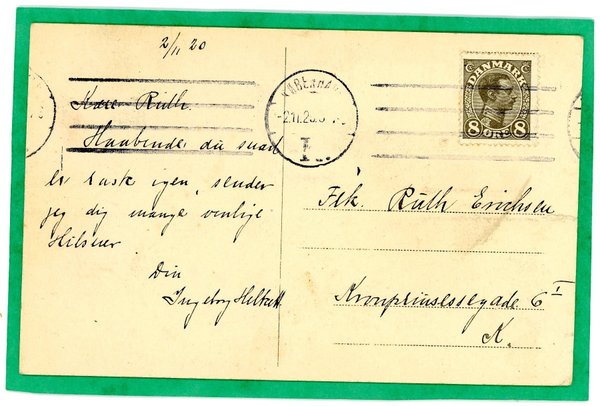 2/11 20
Kære Ruth.
Haabende du snart
er rask igen, sender
jeg dig mange venlige
Hilsner
Din
Ingeborg
KØBENHAVN
2.11.20
DANMARK
8 ØRE 8
Frk. Ruth Erichsen
Kronprinsessegade 6 I
K.